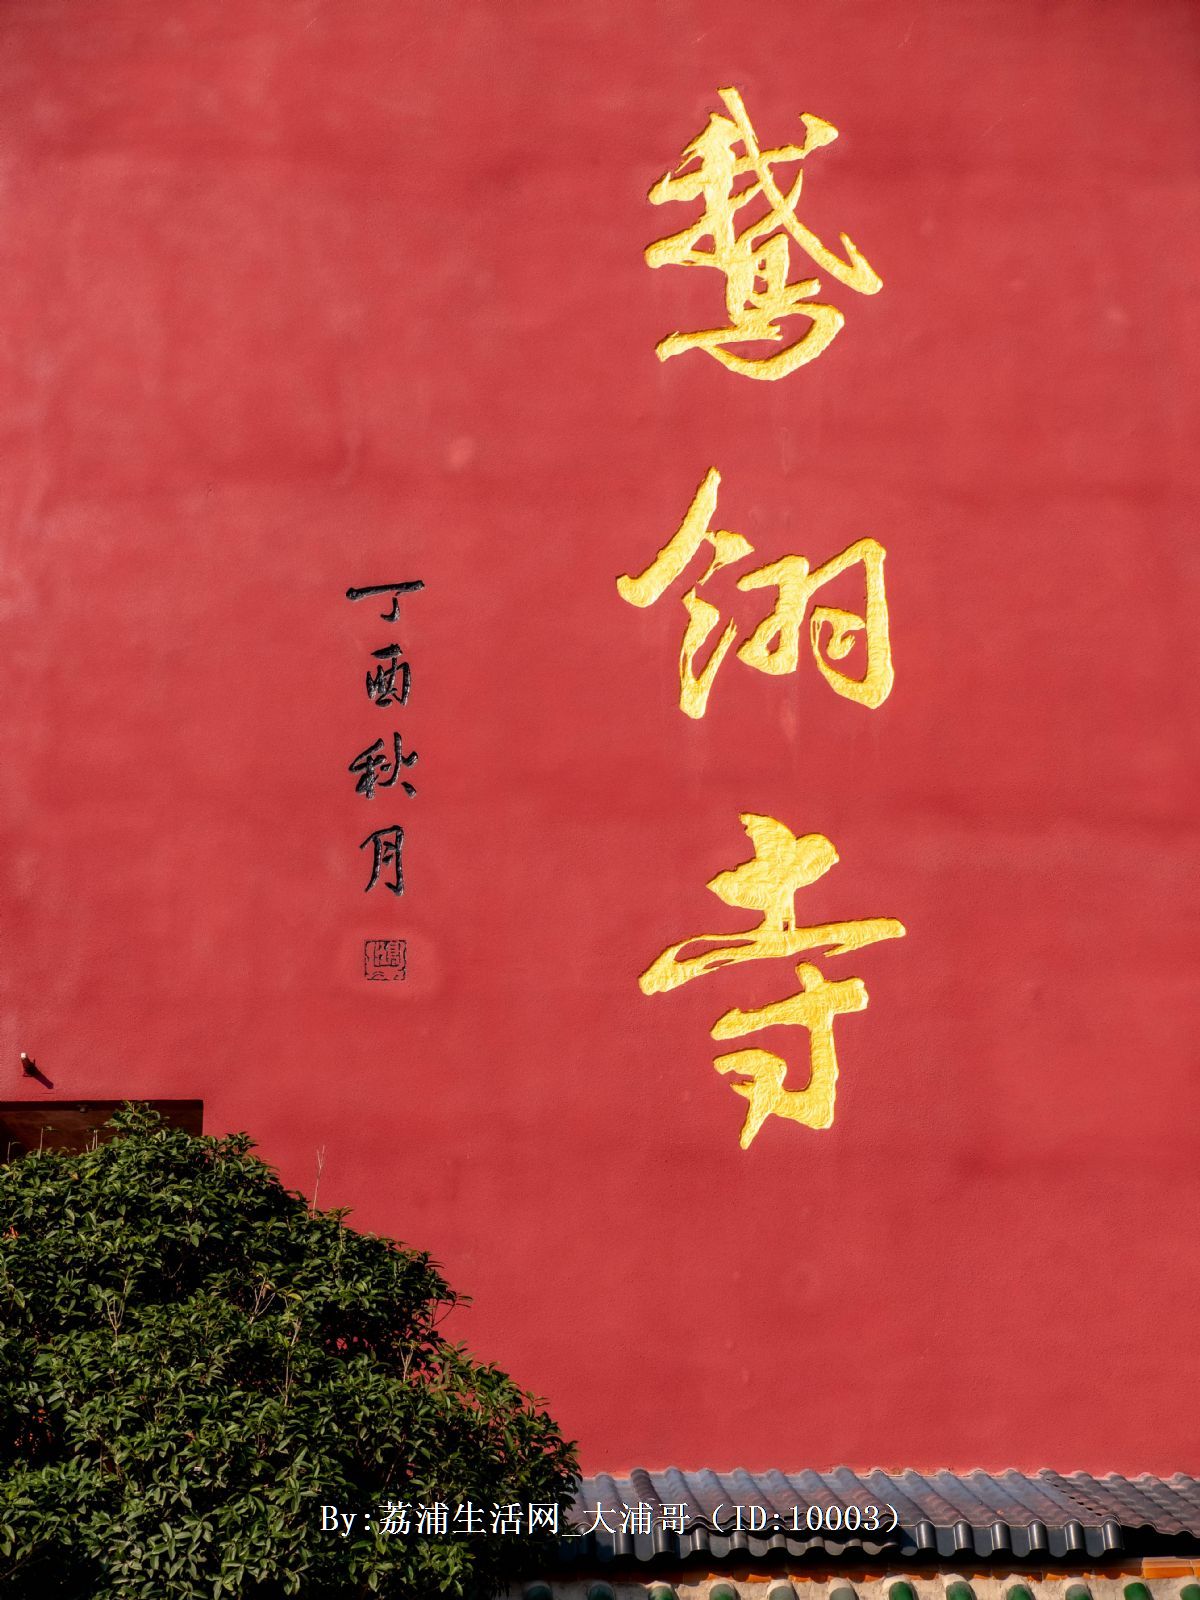 鹅翎寺
丁酉秋月
By:荔浦生活网_大浦哥（ID:10003）